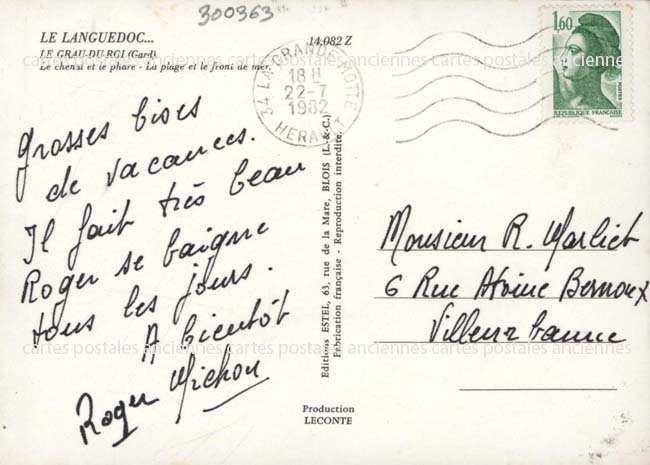 300363
LE LANGUEDOC...
14.082 Z
LE GRAU-DU-ROI (Gard)
Le chenal et le phare - La plage et le front de mer.
34 LA GRANDE-MOTTE
18 H
22-7
1982
HERAULT
1,60
POSTES
REPUBLIQUE FRANÇAISE
Grosses bises
de vacances.
Il fait très beau
Roger se baigne
tous les jours.
A bientôt
Roger Michou
Editions ESTEL, 63, rue de la Mare, BLOIS (L.-&-C.)
Fabrication française - Reproduction interdite.
Monsieur R. Marliet
6 Rue Antoine Bernoux
Villeurbanne
cartes postales anciennes cartes postales anciennes cartes postales anciennes
cartes postales anciennes cartes postales anciennes cartes postales anciennes
Production
LECONTE